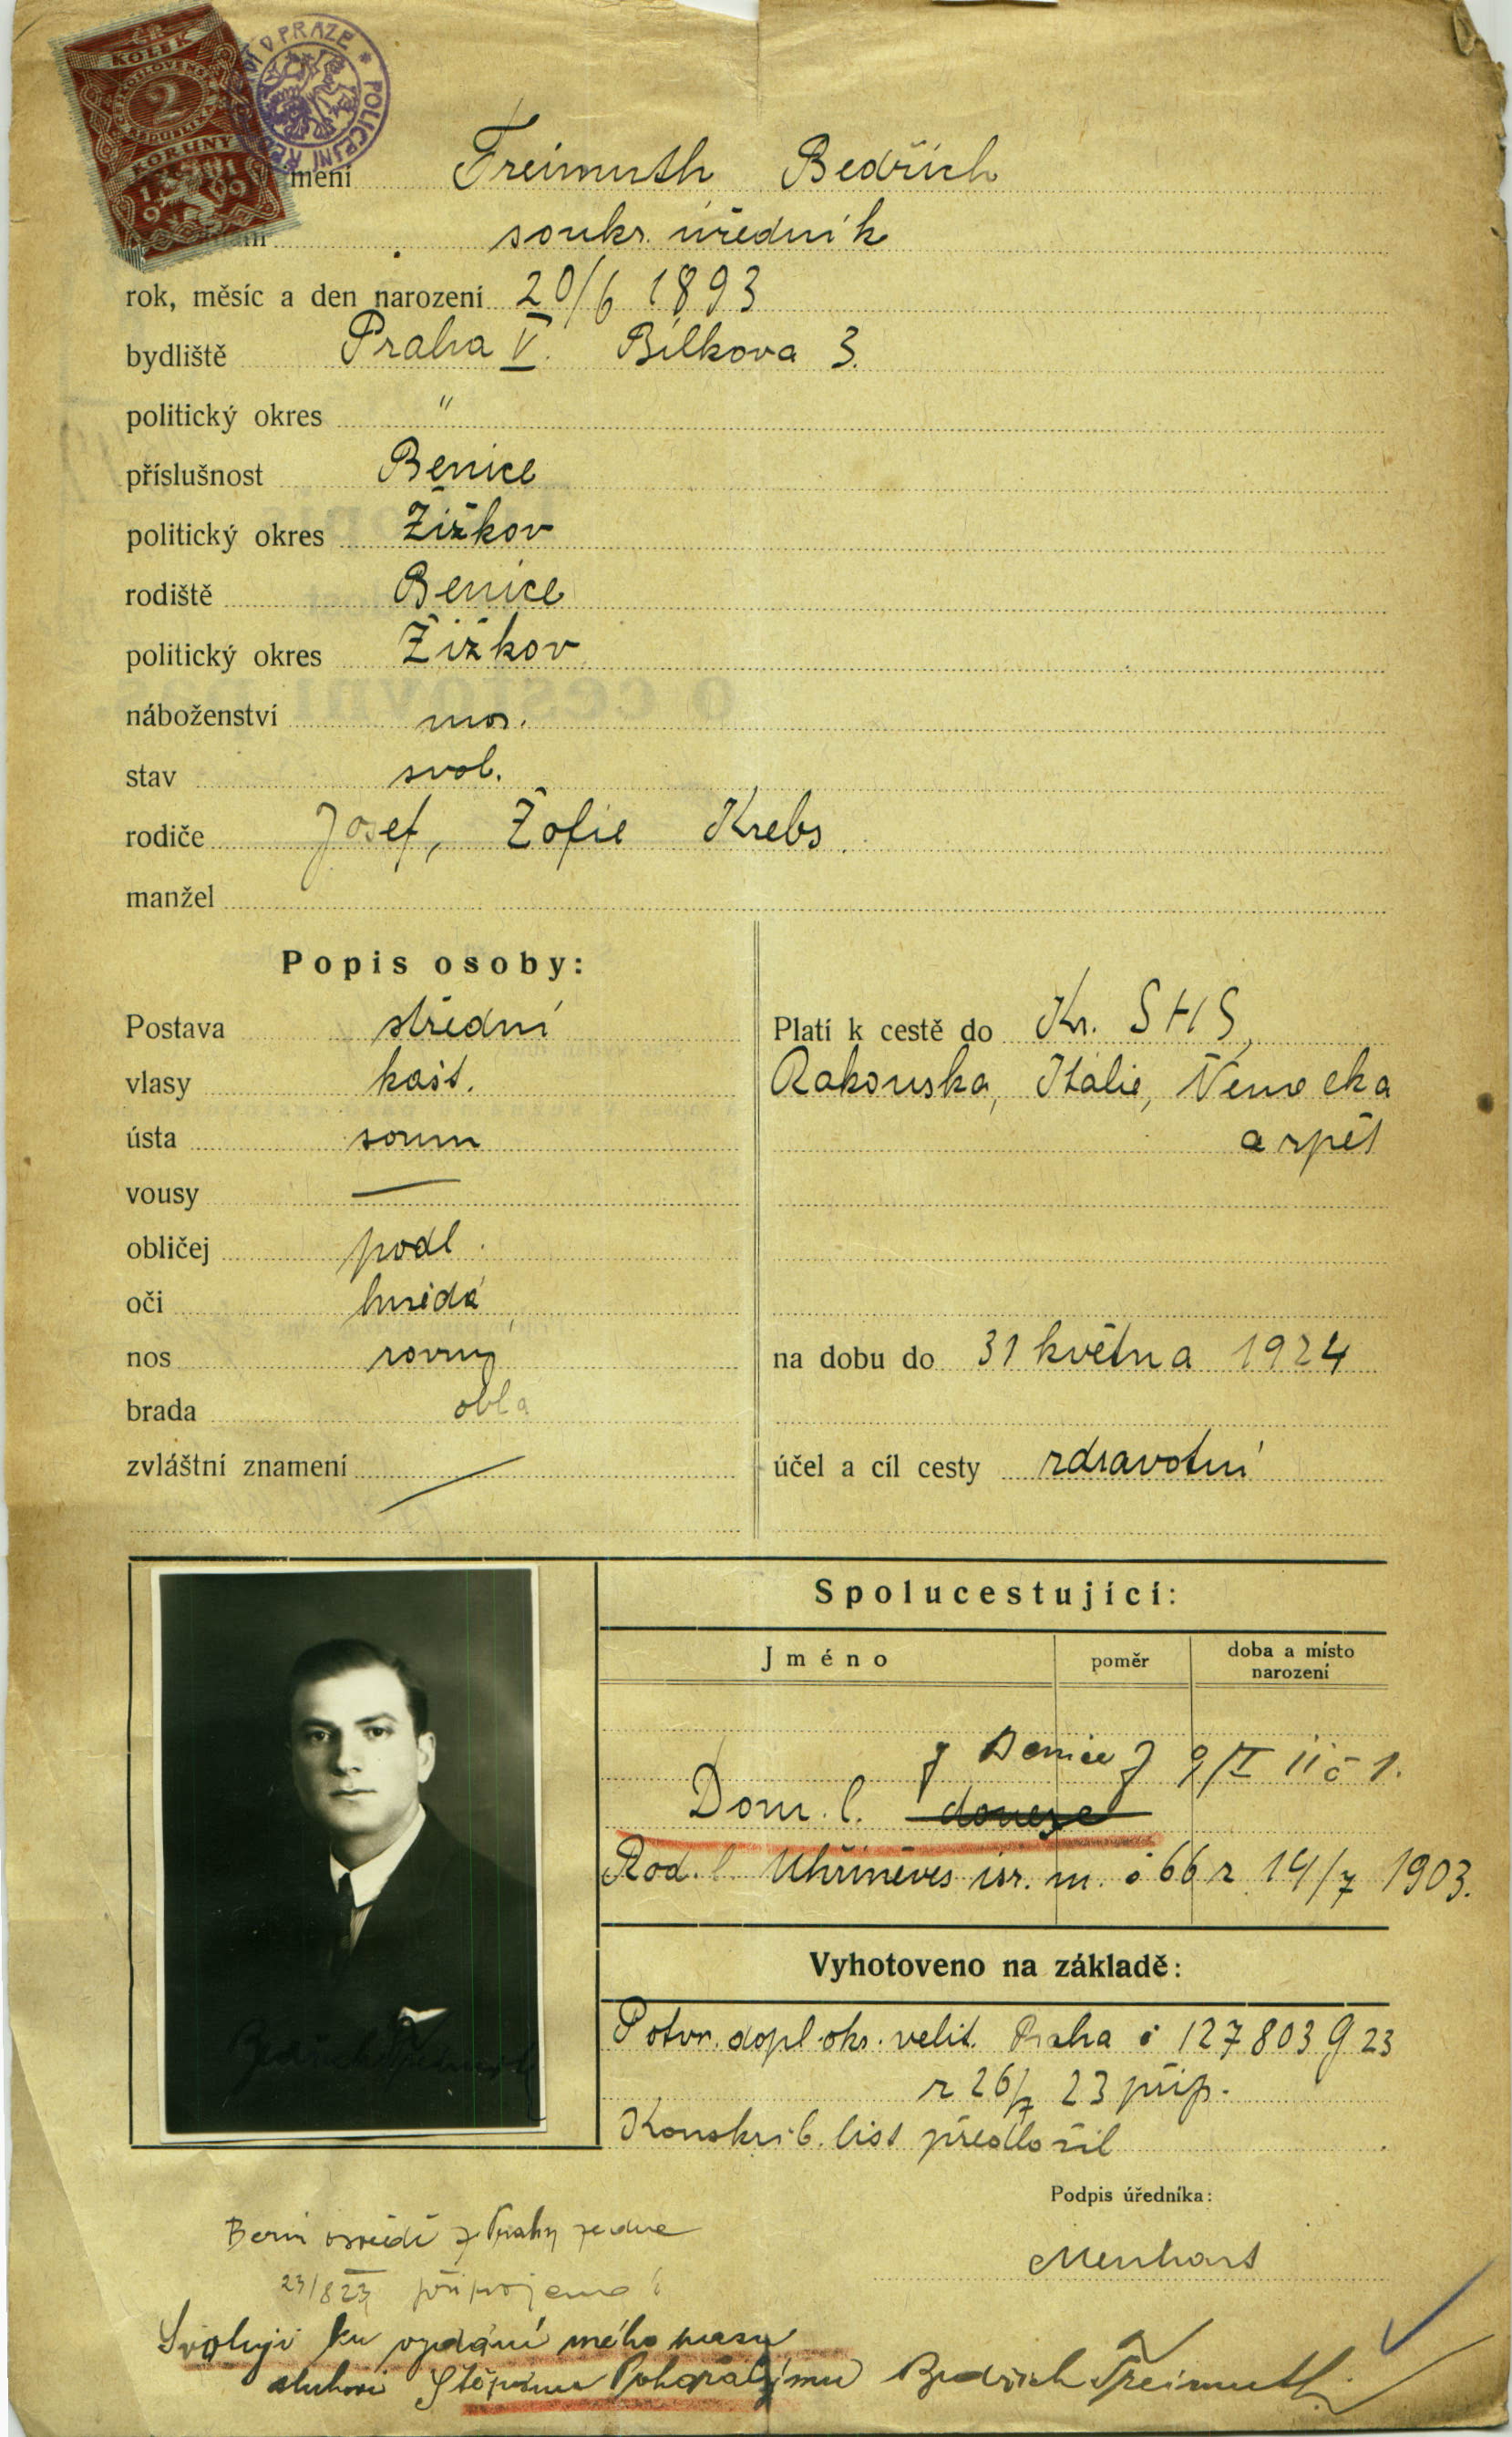 KOLEK
2
KORUNY
POLICEJNÍ ŘE V PRAZE
mení Freimuth Bedřich
soukr. úředník
rok, měsíc a den narození 20/6 1893
bydliště Praha V. Bílkova 3.
politický okres "
příslušnost Benice
politický okres Žižkov
rodiště Benice
politický okres Žižkov
náboženství mos.
stav svob.
rodiče Josef, Žofie Krebs.
manžel
Popis osoby:
Postava střední
vlasy kašt.
ústa soum
vousy —
obličej podl.
oči hnědá
nos rovný
brada oblá
zvláštní znamení —
Platí k cestě do Kr. SHS,
Rakouska, Italie, Německa
a zpět
na dobu do 31 května 1924
účel a cíl cesty zdravotní
Spolucestující:
Jméno poměr doba a místo narození
z Benice z 9/I č 1.
Dom. l.
Rod. l. Uhříněves isr. m. č 66 z 14/7 1903.
Vyhotoveno na základě:
Potvr. dopl. okr. velit. Praha č 127803 23
z 26/7 23 přip.
Konskrib. list předložil
Podpis úředníka:
Menhart
Berní z Prahy ze dne
23/8 23 připojeno
Svoluji ku vydání mého pasu
sluhovi Štěpánu Bedřich Freimuth